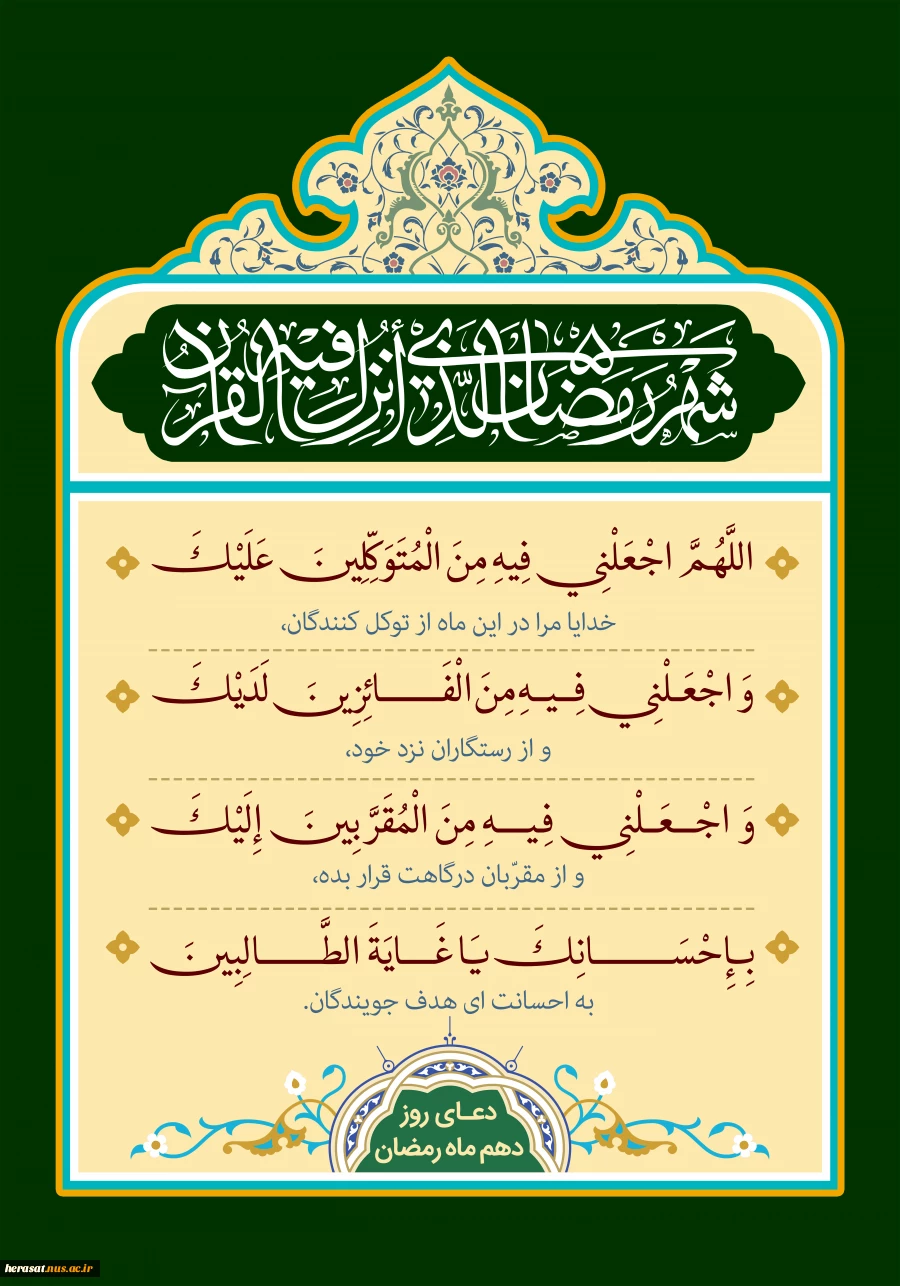 شَهْرُ رَمَضَانَ الَّذِي أُنْزِلَ فِيهِ الْقُرْآنُ
اللَّهُمَّ اجْعَلْنِي فِيهِ مِنَ الْمُتَوَكِّلِينَ عَلَيْكَ
خدایا مرا در این ماه از توکل کنندگان،
وَ اجْعَلْنِي فِيهِ مِنَ الْفَائِزِينَ لَدَيْكَ
و از رستگاران نزد خود،
وَ اجْعَلْنِي فِيهِ مِنَ الْمُقَرَّبِينَ إِلَيْكَ
و از مقرّبان درگاهت قرار بده،
بِإِحْسَانِكَ يَا غَايَةَ الطَّالِبِينَ
به احسانت ای هدف جویندگان.
دعای روز
دهم ماه رمضان
herasat.nus.ac.ir